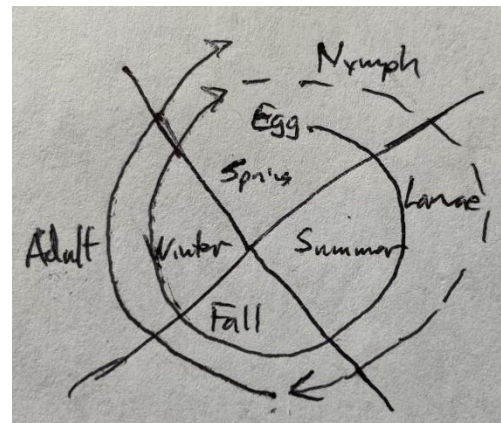 Nymph
Egg
Spring
Larvae
Adult
Winter
Summer
Fall